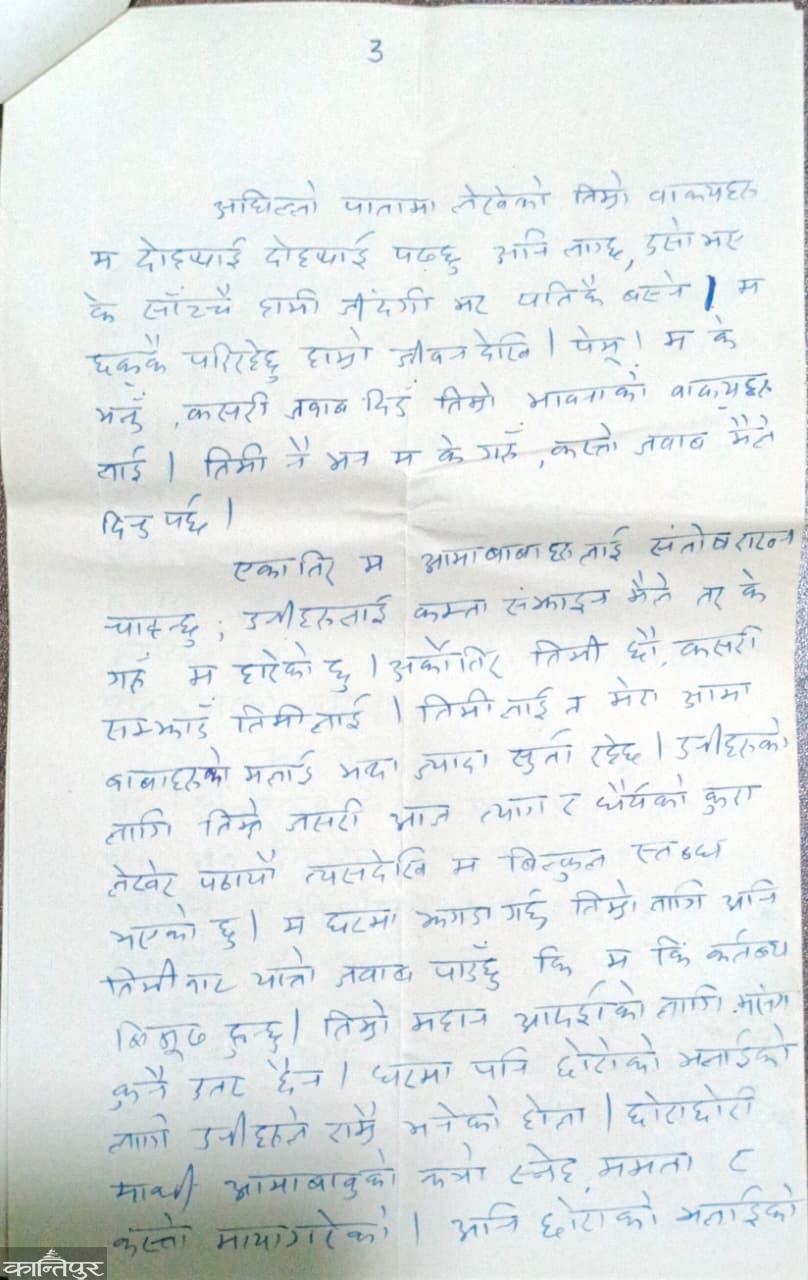 3
अघिल्लो पातामा लेखेको तिम्रो वाक्यहरु
म दोहर्‍याई दोहर्‍याई पढ्छु अनि लाग्छ, उसो भए
के साँच्चै हामी जींदगी भर पतिकै बस्ने । म
छक्कै परिरहेछु हाम्रो जीवन देखि । पेम् । म के
भनुँ , कसरी जवाब दिउं तिम्रो भावनाको वाक्यहरु
लाई । तिमी नै भन म के गरुँ , कस्तो जवाब मैले
दिनु पर्छ ।
एकातिर म आमाबाबाहरुलाई संतोष राख्न
चाहन्छु ; उनीहरुलाई कम्ता संझाइन मैले तर के
गरुँ म हारेको छु । अर्कोतिर तिमी छौ , कसरी
सम्झाउँ तिमीलाई । तिमीलाई त मेरा आमा
बाबाहरुको मलाई भन्दा ज्यादा सुर्ता रहेछ । उनीहरुको
लागि तिम्रो जसरी आज त्याग र धैर्यको कुरा
लेखेर पठायौ त्यसदेखि म बिल्कुल स्तब्ध
भएको छु । म घरमा झगडा गर्छु तिम्रो लागि अनि
तिमीबाट यात्रो जवाब पाउँछु कि म किं कर्तब्य
बिमूढ हुन्छु । तिम्रो महान आदर्शको लागि मसंग
कुनै उतर छैन । घरमा पनि छोराको भलाईको
लागि उनीहरुले राम्रै भनेको होला । छोराछोरी
माथी आमाबाबुको कत्रो स्नेह ममता र
कस्तो मायागरेको । अनि छोराको भलाईको
कान्तिपुर